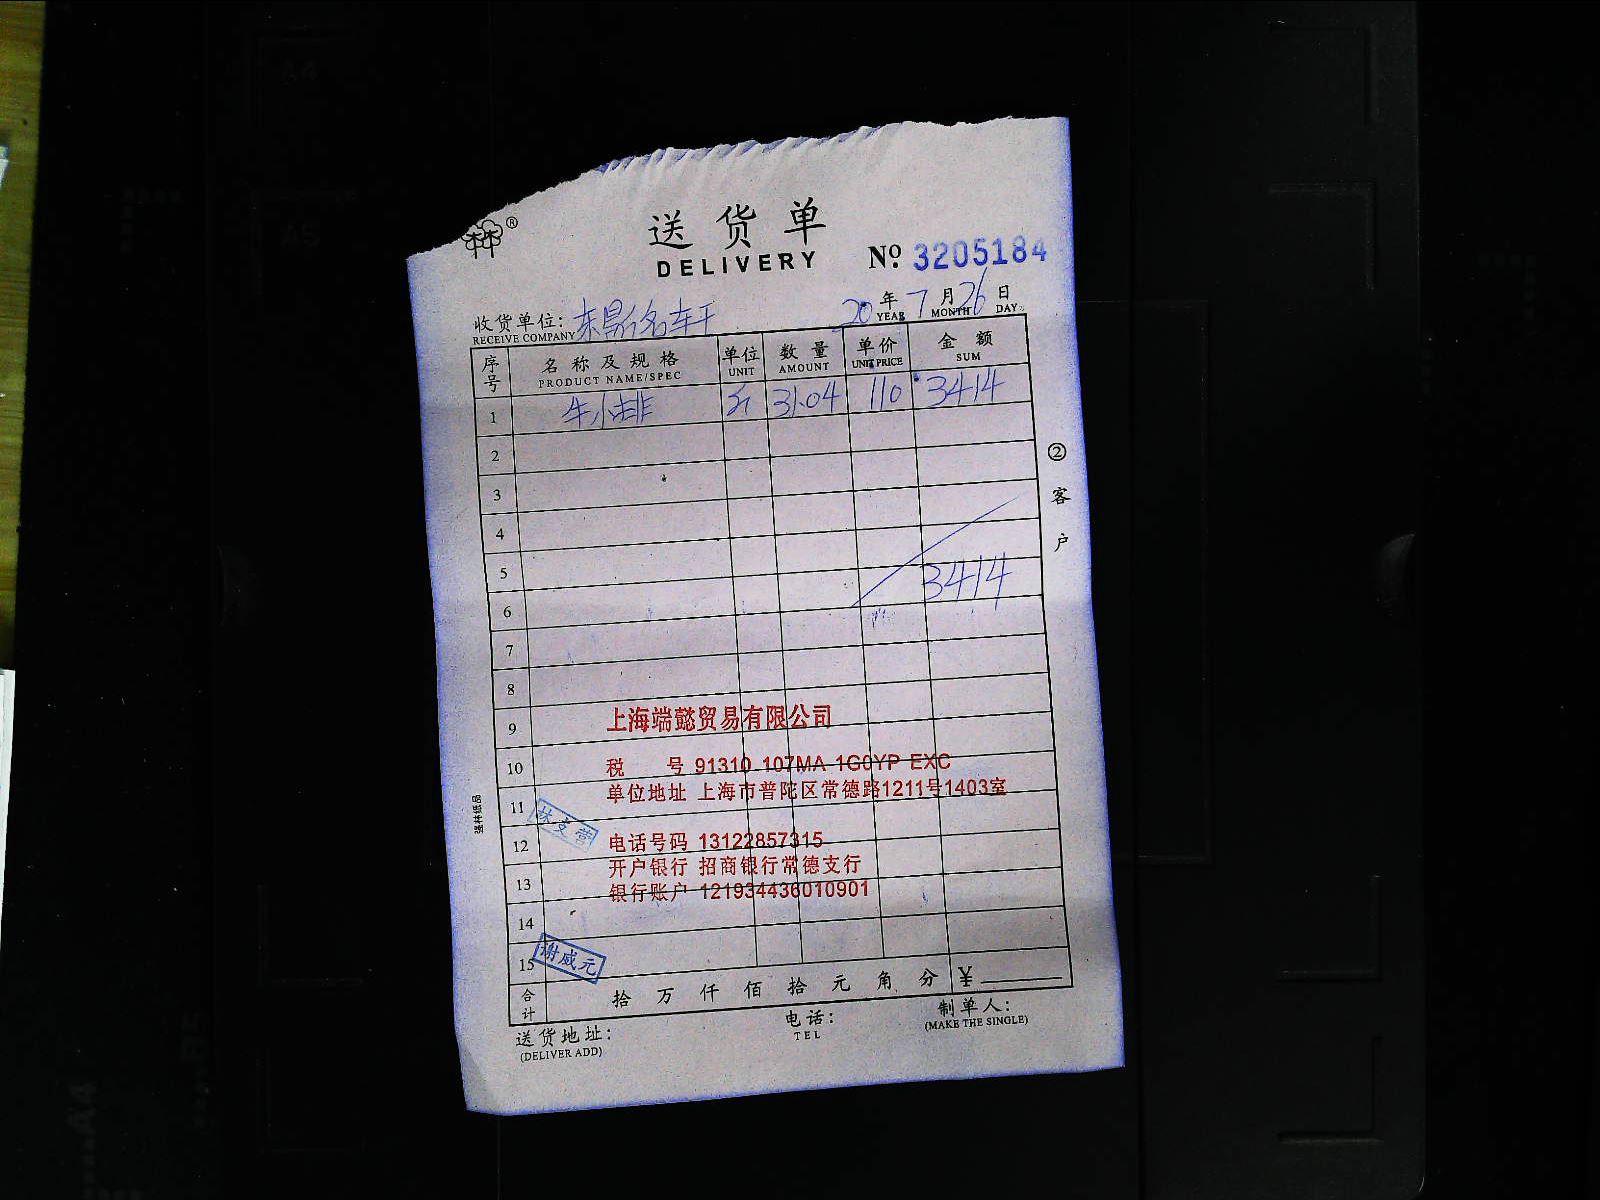 ®
送货单
DELIVERY
No. 3205184
收货单位:
RECEIVE COMPANY
20 年 7 月 26 日
YEAR MONTH DAY
序号 名称及规格 单位 数量 单价 金额
PRODUCT NAME/SPEC UNIT AMOUNT UNIT PRICE SUM
1 牛小排 斤 31.04 110 3414
2
3
4
5
3414
6
7
8
9
上海端懿贸易有限公司
10
税 号 91310 107MA 1G0YP EXC
11
单位地址 上海市普陀区常德路1211号1403室
12
电话号码 13122857315
开户银行 招商银行常德支行
13
银行账户 121934436010901
14
15
谢威元
合计 拾 万 仟 佰 拾 元 角 分 ¥
送货地址:
(DELIVER ADD)
电话:
TEL
制单人:
(MAKE THE SINGLE)
②客户